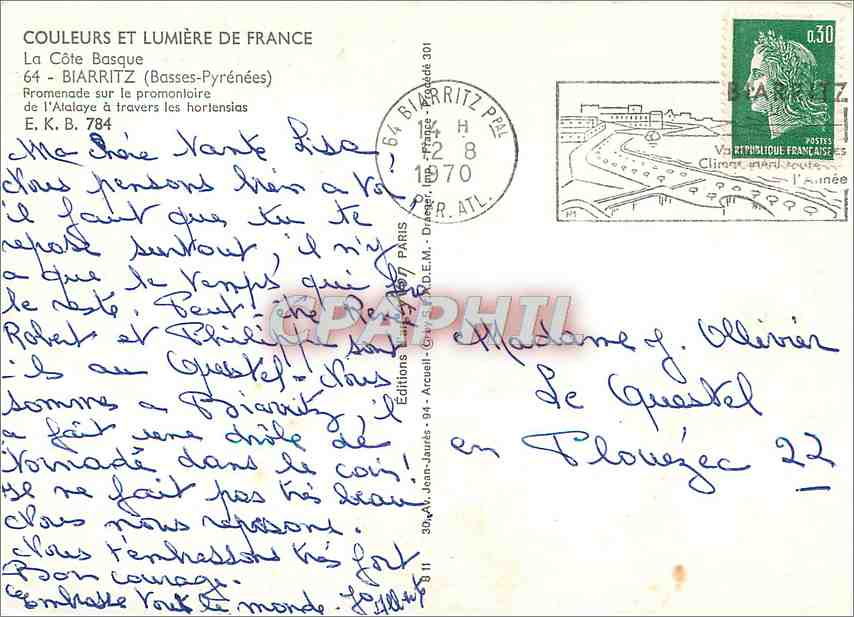 COULEURS ET LUMIÈRE DE FRANCE
La Côte Basque
64 - BIARRITZ (Basses-Pyrénées)
Promenade sur le promontoire
de l'Atalaye à travers les hortensias
E. K. B. 784
Ma chère Tante Lisa,
Nous pensons bien a toi,
il faut que tu te
repose surtout, il n'y
a que le temps qui fera
le reste. Peut-être René,
Robert et Philippe sont
-ils au Questel - Nous
sommes a Biarritz, il
a fait une drôle de
tornade dans le coin!
Il ne fait pas très beau
Nous nous reposons.
Nous t'embrassons très fort
Bon courage.
Embrasse tout le monde.
Éditions PARIS
30, Av. Jean-Jaurès - 94 - Arcueil - Draeger, Imp. - France - Procédé 301
B 11
64 BIARRITZ PPAL
14 H
12 8
1970
PYR. ATL.
BIARRITZ
l'Année
0,30
POSTES
REPUBLIQUE FRANÇAISE
CPAPHIL
Madame J. Ollivier
Le Questel
en Plouézec 22